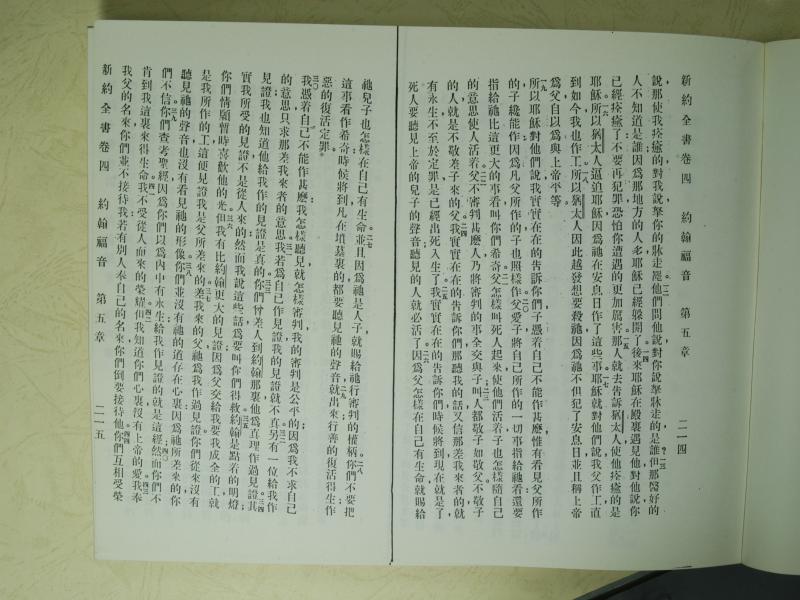 新約全書卷四 約翰福音 第五章 二一四
說那使我痊癒的對我說拏你的牀走罷他們問他說對你說拏牀走的是誰但那醫好的
人不知道是誰因爲那地方的人多耶穌已經躲開了後來耶穌在殿裏遇見他對他說你
已經痊癒了不要再犯罪恐怕你遭遇的更加厲害那人就去告訴猶太人使他痊癒的是
耶穌所以猶太人逼迫耶穌因爲祂在安息日作了這些事耶穌就對他們說我父作工直
到如今我也作工所以猶太人因此越發想要殺祂因爲祂不但犯了安息日並且稱上帝
爲父自以爲與上帝平等
所以耶穌對他們說我實實在在的告訴你們子憑着自己不能作甚麼惟有看見父所作
的子纔能作因爲凡父所作的子也照樣作父愛子將自己所作的一切事指給祂看還要
指給祂比這更大的事看叫你們希奇父怎樣叫死人起來使他們活着子也怎樣隨自己
的意思使人活着父不審判甚麼人乃將審判的事全交與子叫人都敬子如敬父不敬子
的人就是不敬差子來的父我實實在在的告訴你們那聽我的話又信那差我來者的就
有永生不至於定罪是已經出死入生了我實實在在的告訴你們時候將到現在就是了
死人要聽見上帝的兒子的聲音聽見的人就必活了因爲父怎樣在自己有生命就賜給
祂兒子也怎樣在自己有生命並且因爲祂是人子就賜給祂行審判的權柄你們不要把
這事看作希奇時候將到凡在墳墓裏的都要聽見祂的聲音就出來行善的復活得生作
惡的復活定罪
我憑着自己不能作甚麼我怎樣聽見就怎樣審判我的審判是公平的因爲我不求自己
的意思只求那差我來者的意思我若爲自己作見證我的見證就不眞另有一位給我作
見證我也知道他給我作的見證是眞的你們曾差人到約翰那裏他爲眞理作過見證其
實我所受的見證不是從人來的然而我說這些話爲要叫你們得救約翰是點着的明燈
你們情願暫時喜歡他的光但我有比約翰更大的見證因爲父交給我要我成全的工就
是我所作的工這便見證我是父所差來的差我來的父祂爲我作過見證你們從來沒有
聽見祂的聲音也沒有看見祂的形像你們並沒有祂的道存在心裏因爲祂所差來的你
們不信你們查考聖經因爲你們以爲內中有永生給我作見證的就是這經然而你們不
肯到我這裏來得生命我不受從人而來的榮耀但我知道你們心裏沒有上帝的愛我奉
我父的名來你們並不接待我若有別人奉自己的名來你們倒要接待他你們互相受榮
新約全書卷四 約翰福音 第五章 二一五